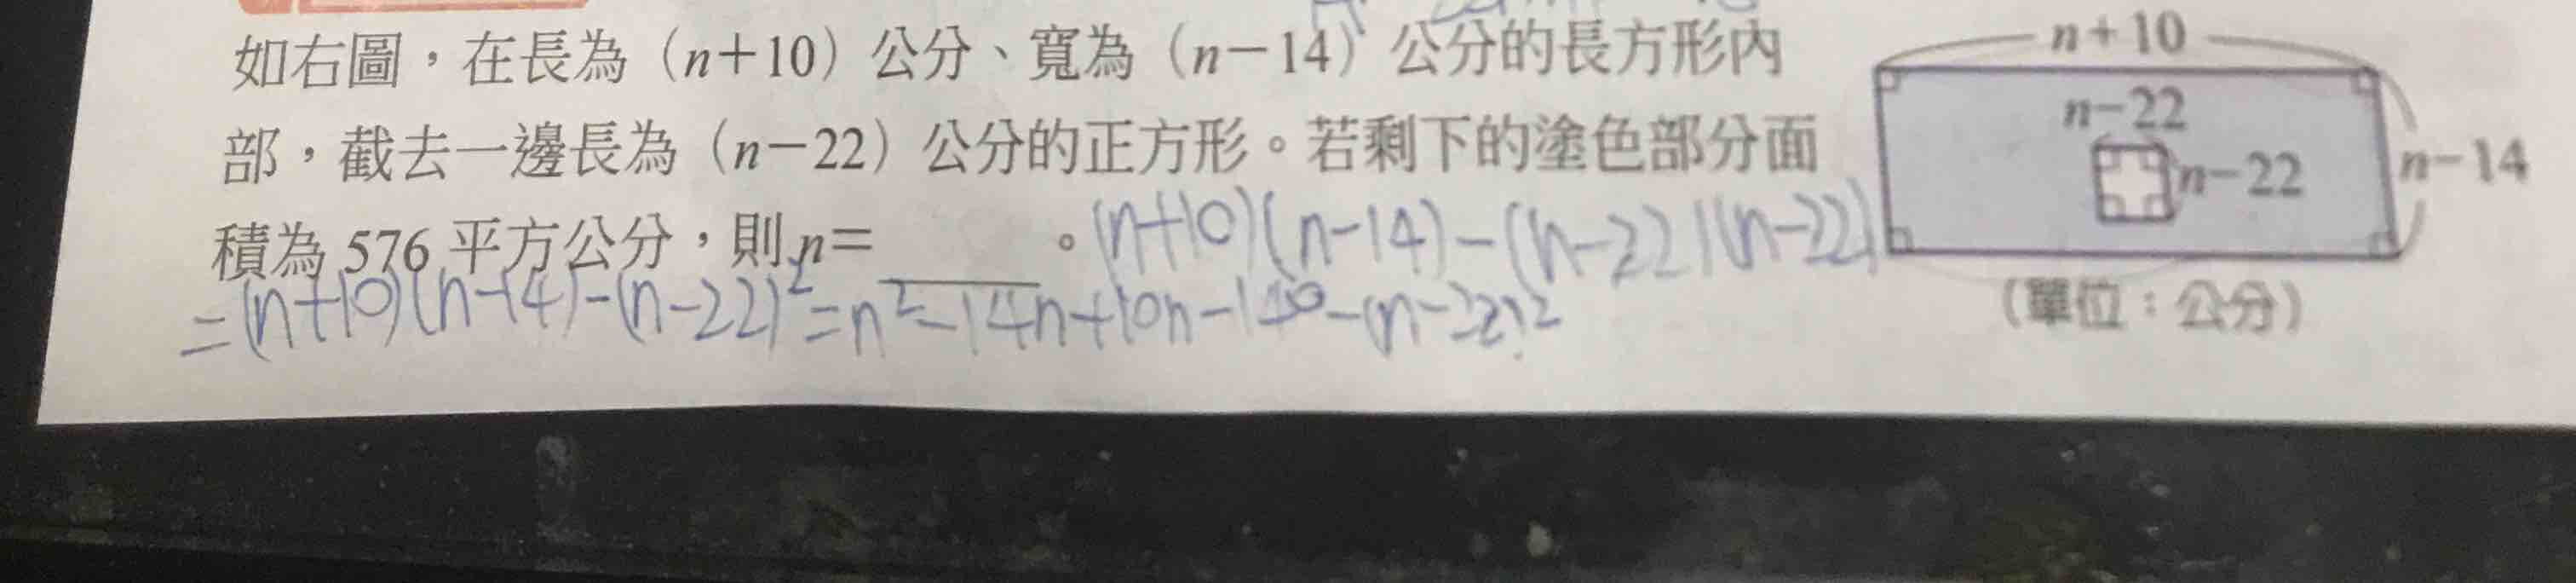 如右圖，在長為（n＋10）公分、寬為（n－14）公分的長方形內
部，截去一邊長為（n－22）公分的正方形。若剩下的塗色部分面
積為 576 平方公分，則 n＝　　　。
(n+10)(n-14)-(n-22)(n-22)
=(n+10)(n-14)-(n-22)²=n²-14n+10n-140-(n-22)²
n+10
n−22
n−22
n−14
（單位：公分）